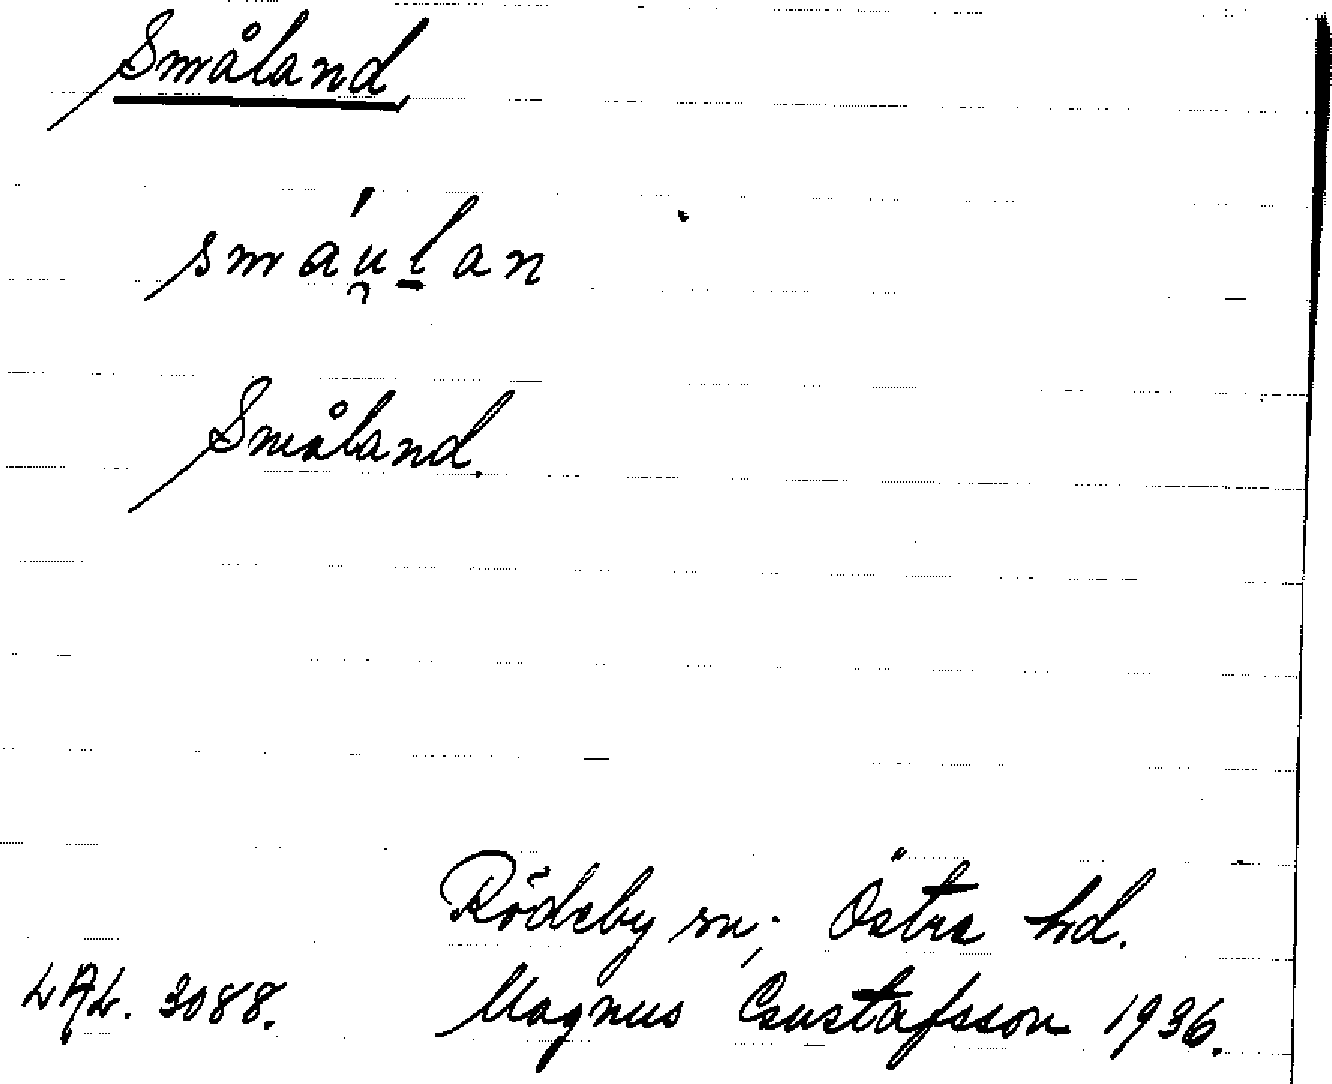 Småland
smáu̯l̠an
Småland.
Rödeby sn; Östra hd.
LAL. 3088. Magnus Gustafsson 1936.